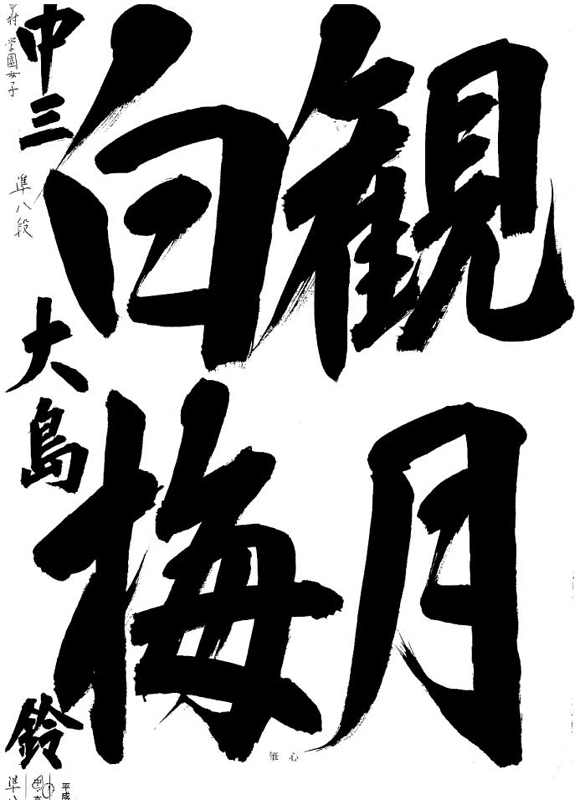 観月
白梅
中三 大島 鈴
学園女子
準八段
心筆
平成